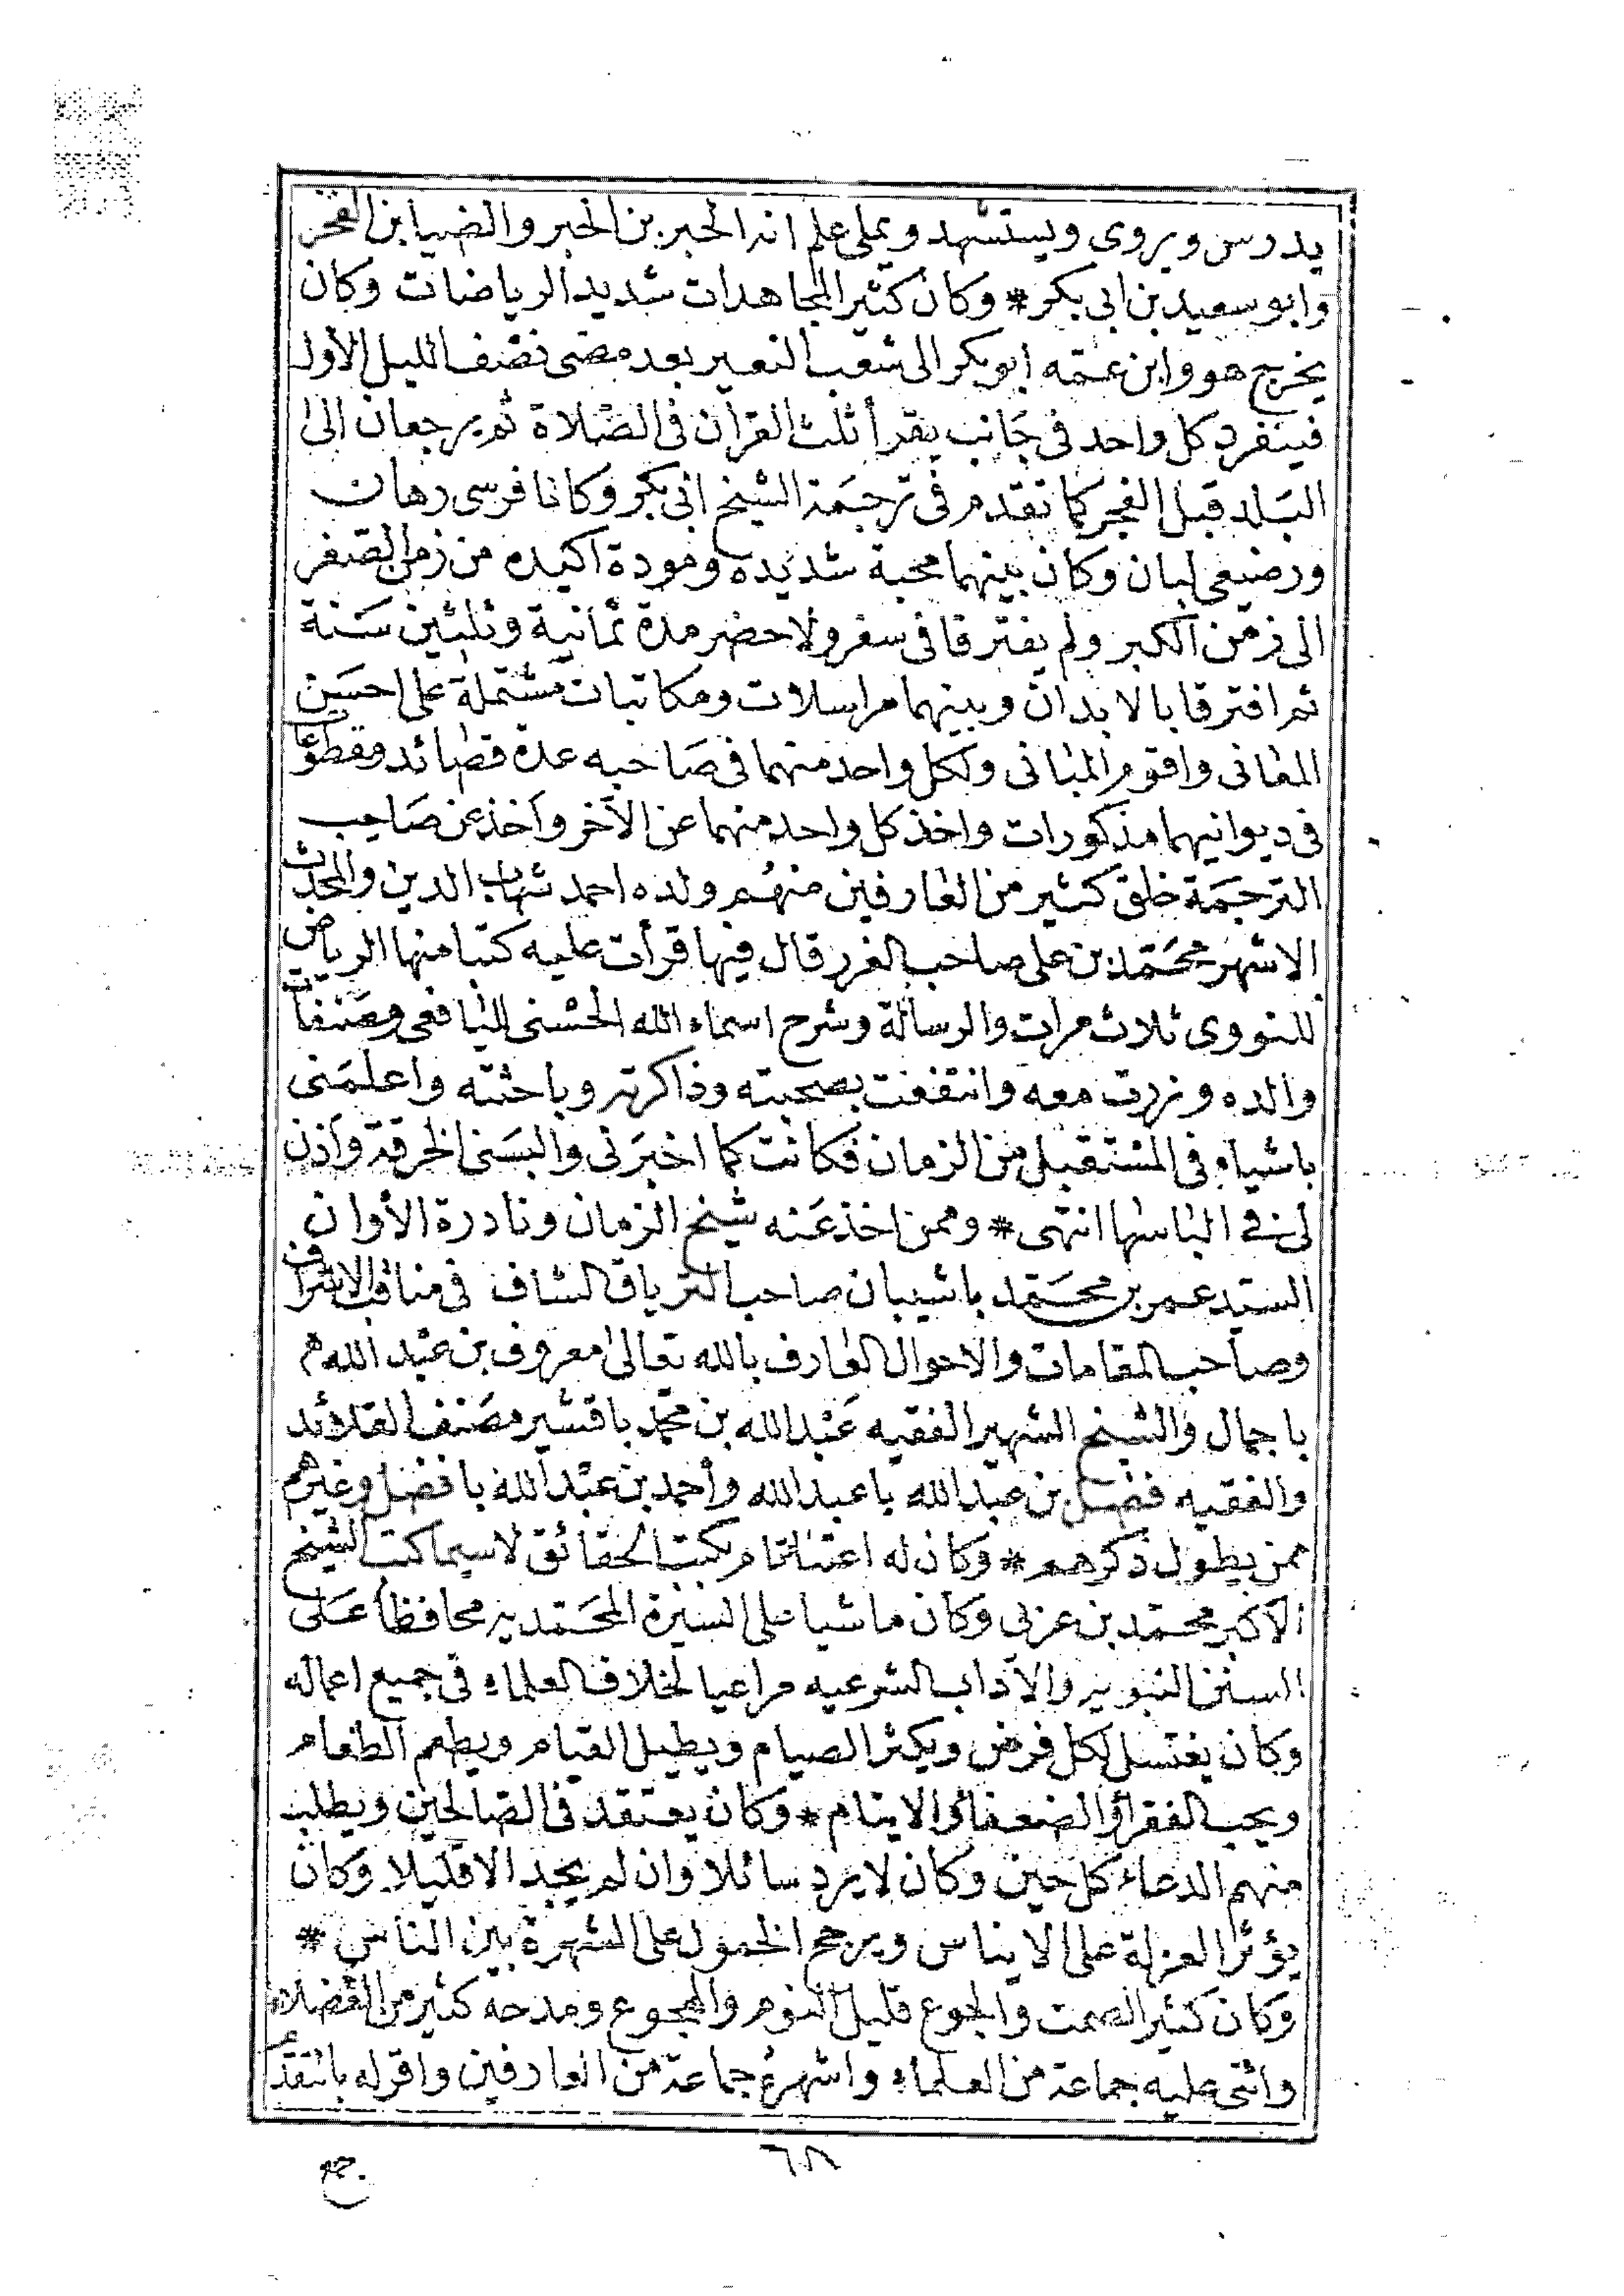 يدرس ويروى ويستشهد ويملى علم انه الحبر بن الحبر والضيا بن الفخر
وابو سعيد بن ابى بكر * وكان كثير المجاهدات شديد الرياضات وكان
يخرج هو وابن عمّه ابو بكر الى شعب النعير بعد مضى نصف الليل الأول
فينفرد كل واحد فى جَانب يقرأ ثلث القرآن فى الصّلاة ثم يرجعان الى
البَلد قبل الفجر كما تقدم فى ترجَمة الشيخ ابى بكر وكانا فرسى رهان
ورضيعى لبان وكان بينهما محبة شديده ومودة اكيده من زمن الصغر
الى زمن الكبر ولم يفترقا فى سفر ولا حضر مدة ثمانية وثلثين سَنة
ثم افترقا بالابدان وبينهما مراسلات ومكاتبات مشتملة على احسَن
المعانى واقوم المبانى ولكل واحد منهما فى صَاحبه عدة قصائد ومقطوعا
فى ديوانيهما مذكورات واخذ كل واحد منهما عن الآخر وأخذ عن صَاحب
الترجَمَة خلق كثير من العارفين منهُم ولده احمد شهاب الدين والمحدث
الاشهر محَمّد بن على صاحب الغرر قال فيها قرأت عليه كتبا منها الرياض
للنووى ثلاث مرات والرسالة وشرح اسماء الله الحسنى لليافعى ومصَنفات
والده وزرت معه وانتفعت بصحبته وذاكرته وباحثته واعلمَنى
باشياء فى المستقبل من الزمان فكانت كما اخبرَنى والبسَنى الخرقة وأذن
لى فى الباسها انتهى * وممن اخذ عَنه شيخ الزمان ونادرة الأوان
السيّد عمر بن محَمّد باشيبان صاحب الترياق الشاف فى مناقب الاشراف
وصاحب المقامات والاحوال العارف بالله تعالى معروف بن عبْد الله م
باجمال والشيخ الشهير الفقيه عَبْد الله بن محمّد باقشير مصَنف القلائد
والفقيه فضل بن عبد الله با عبد الله وأحمد بن عبْد الله بافضل وغيرهم
ممن يطول ذكرهم * وكان له اعتنا تام بكتب الحقائق لا سيما كتب الشيخ
الأكبر محمّد بن عربى وكان ماشيا على السيرة المحَمّديه محافظا عَلى
السنن النبويه والآداب الشرعيه مراعيا لخلاف العلماء فى جميع اعماله
وكان يغتسل لكل فرض ويكثر الصيام ويطيل القيام ويطعم الطعام
ويحب الفقرأ والضعفا والايتام * وكان يعتقد فى الصالحين ويطلب
منهم الدعاء كل حين وكان لا يرد سائلا وان لم يجد الا قليلا وكان
يؤثر العزلة على الايناس ويرجح الخمول على الشهرة بين الناس *
وكان كثير الصمت والجوع قليل النوم والهجوع ومدحه كثير من الفضلاء
واثنى عليه جماعة من العلماء واشهره جماعة من العارفين واقر له بالتقدم
٦٨